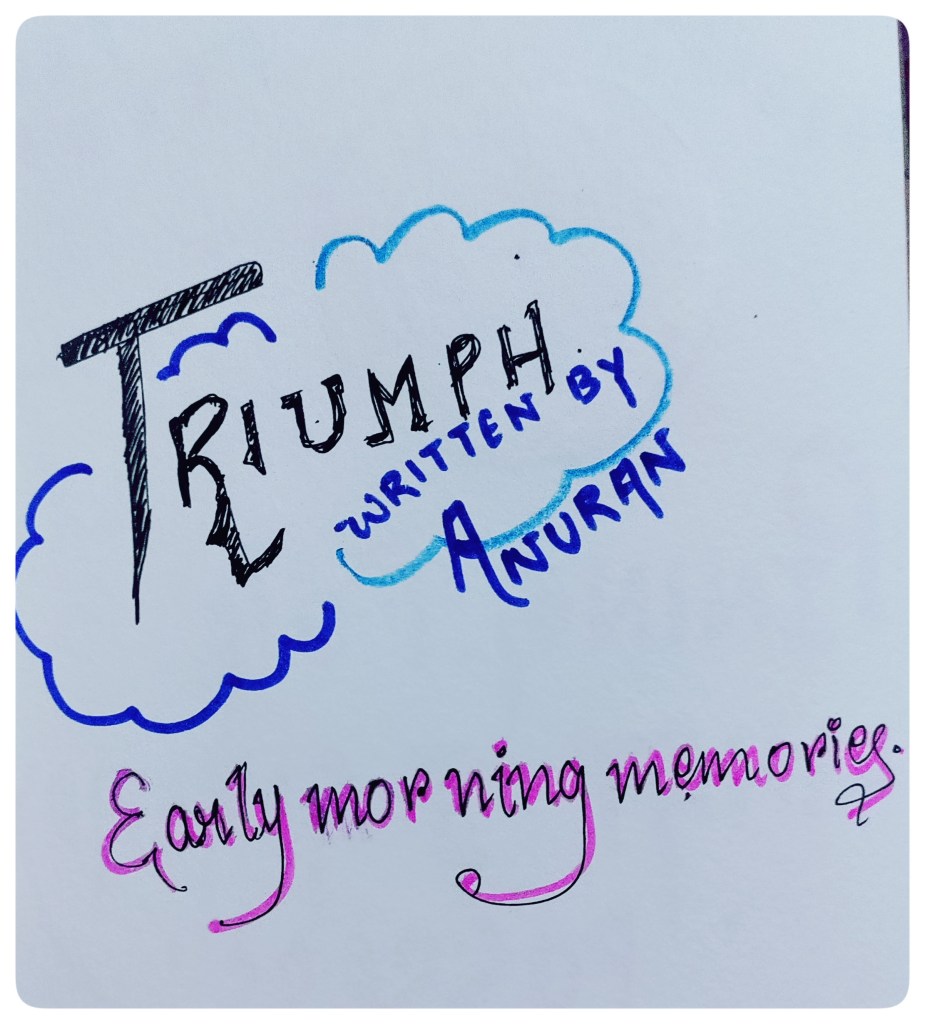 TRIUMPH
WRITTEN BY
ANURAN
Early morning memories.